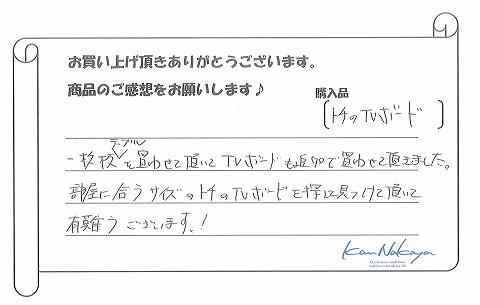 お買い上げ頂きありがとうございます。
商品のご感想をお願いします♪
購入品
[トチのTVボード]
テーブル
一枚板を買わせて頂いてTVボードも追加で買わせて頂きました。
部屋に合うサイズのトチのTVボードを探し見つけて頂いて
有難うございます!
Kan Nakaya